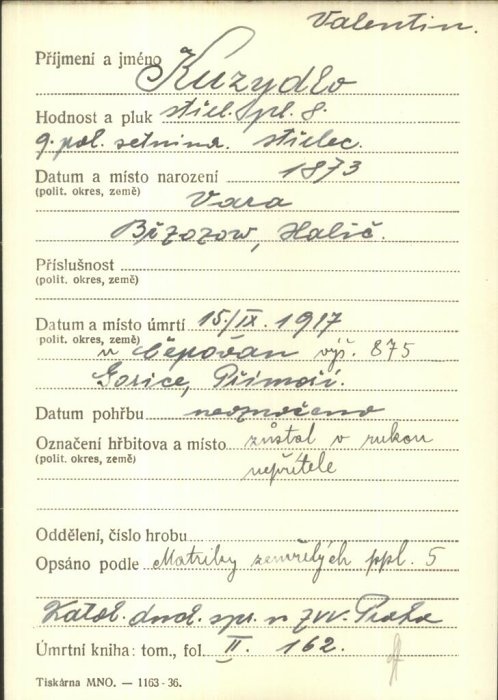 Valentin.
Příjmení a jméno Kuzydlo
Hodnost a pluk střel. pl. 8.
9. pol. setnina. střelec.
Datum a místo narození 1873
(polit. okres, země)
Vara
Břozow, Halič.
Příslušnost
(polit. okres, země)
Datum a místo úmrtí 15./IX. 1917
(polit. okres, země)
u Čepován výš. 875
Gorice, Přímoří.
Datum pohřbu neoznačeno
Označení hřbitova a místo zůstal v rukou
(polit. okres, země)
nepřítele
Oddělení, číslo hrobu
Opsáno podle Matriky zemřelých ppl. 5
Katol. duch. spr. n ZVV. Praha
Úmrtní kniha: tom., fol. II. 162.
Tiskárna MNO. — 1163-36.